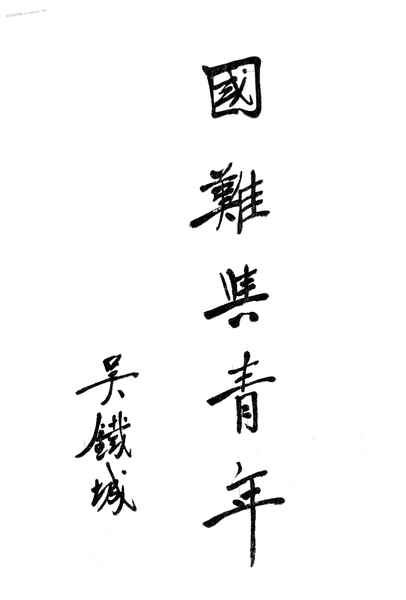 國難與青年
吳鐵城